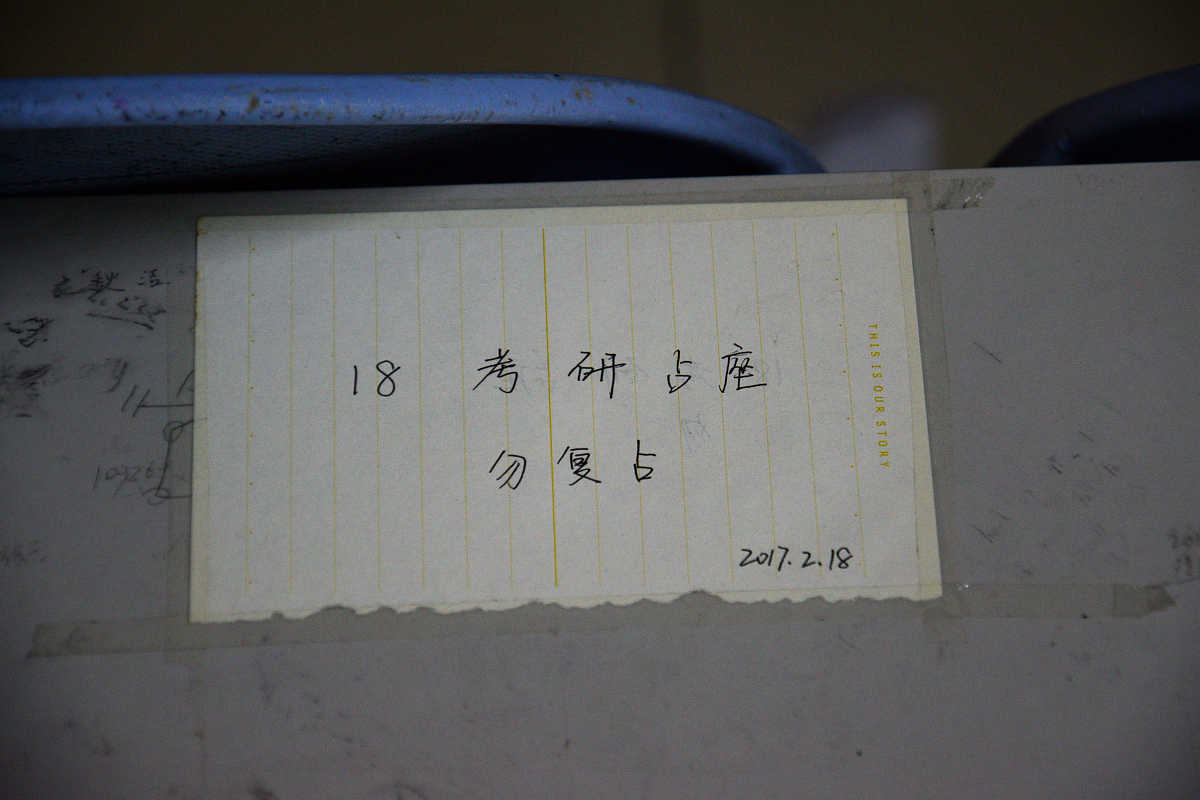 18 考研占座
勿复占
2017.2.18
THIS IS OUR STORY